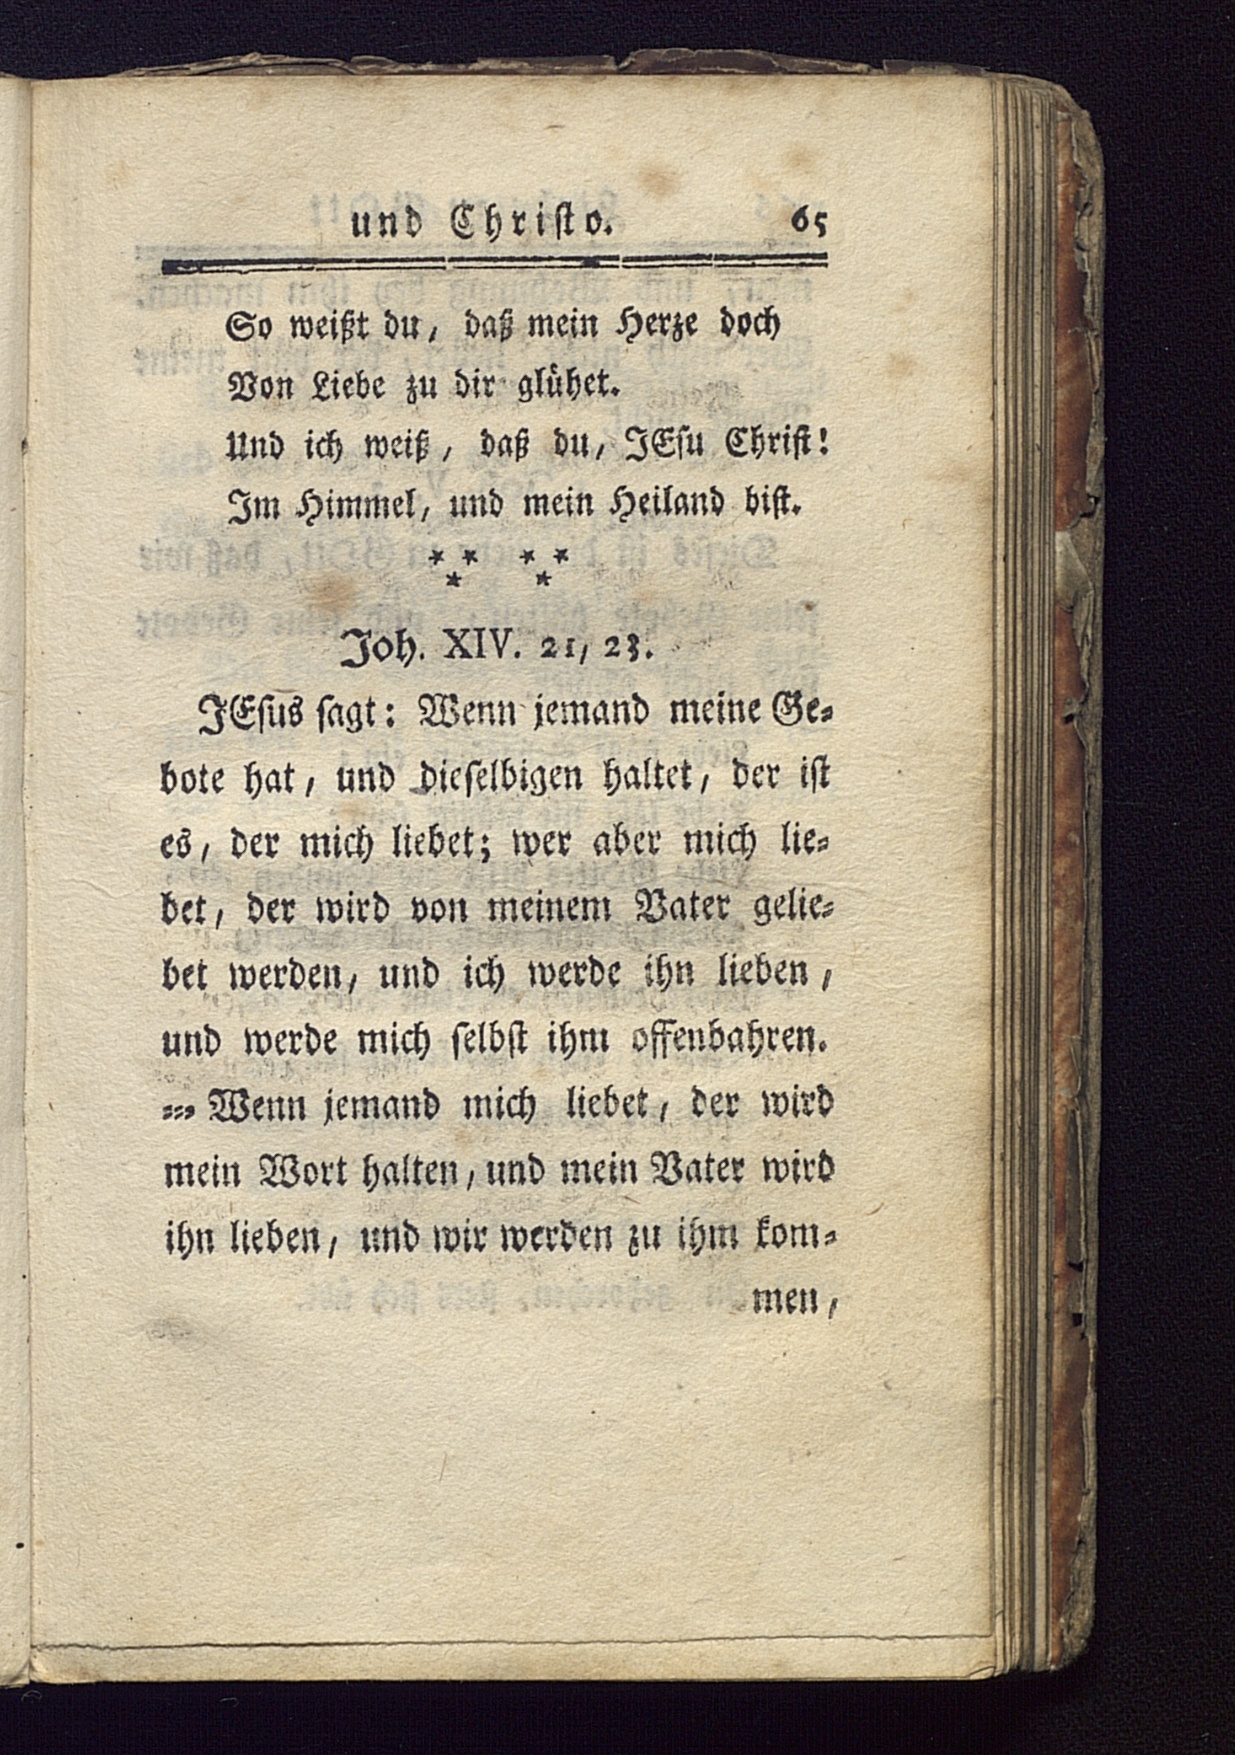 und Christo. 65
So weißt du, daß mein Herze doch
Von Liebe zu dir glühet.
Und ich weiß, daß du, JEsu Christ!
Im Himmel, und mein Heiland bist.
* * * *
* *
Joh. XIV. 21, 23.
JEsus sagt: Wenn jemand meine Ge-
bote hat, und dieselbigen haltet, der ist
es, der mich liebet; wer aber mich lie-
bet, der wird von meinem Vater gelie-
bet werden, und ich werde ihn lieben,
und werde mich selbst ihm offenbahren.
--- Wenn jemand mich liebet, der wird
mein Wort halten, und mein Vater wird
ihn lieben, und wir werden zu ihm kom-
men,